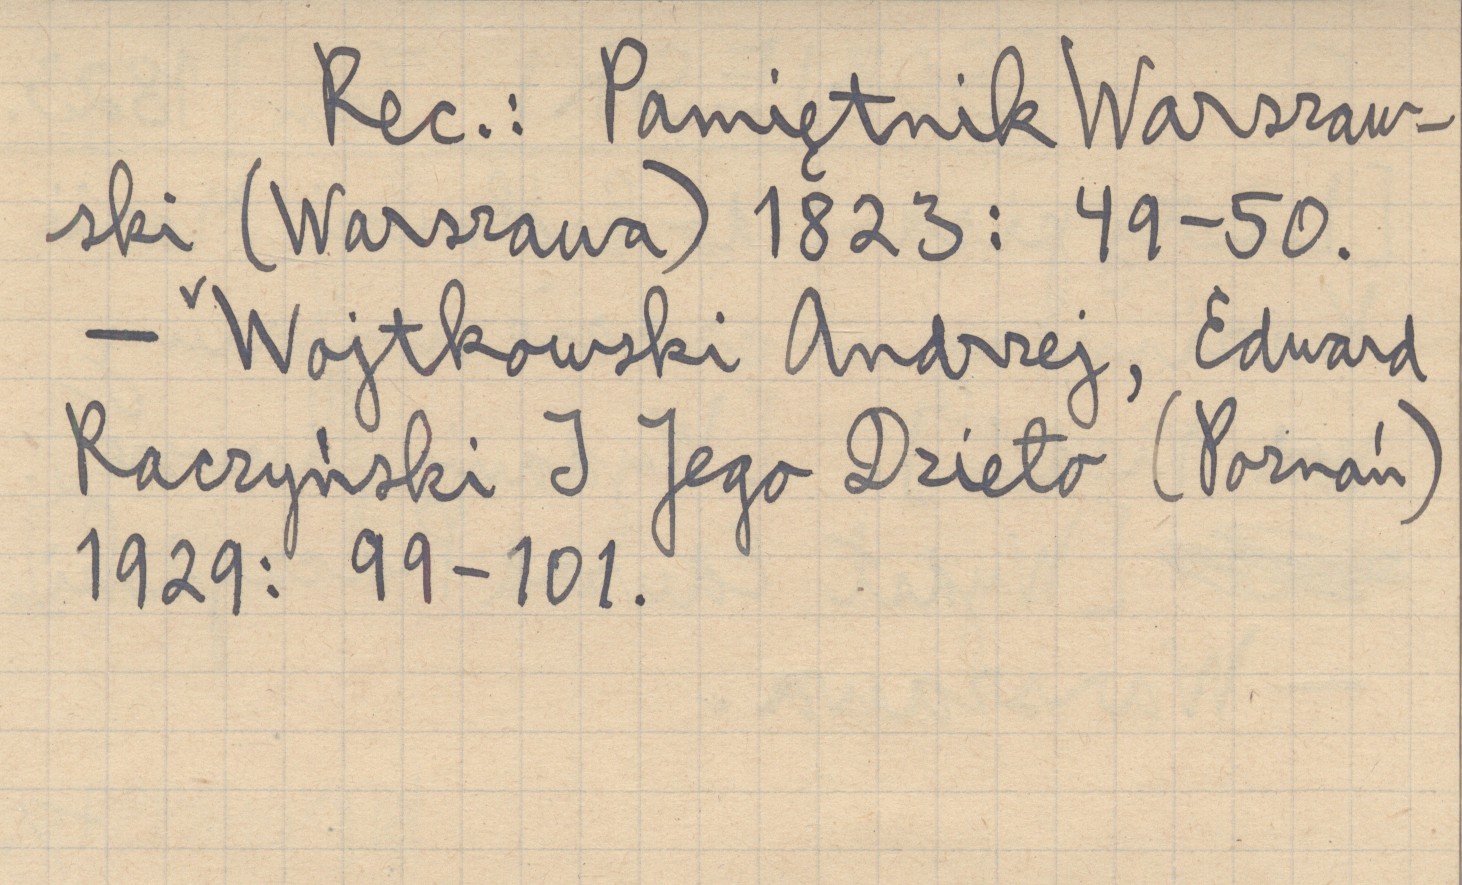 Rec.: Pamiętnik Warszaw-
ski (Warszawa) 1823: 49-50.
— ˇWojtkowski Andrzej, Edward
Raczyński I Jego Dzieło (Poznań)
1929: 99-101.